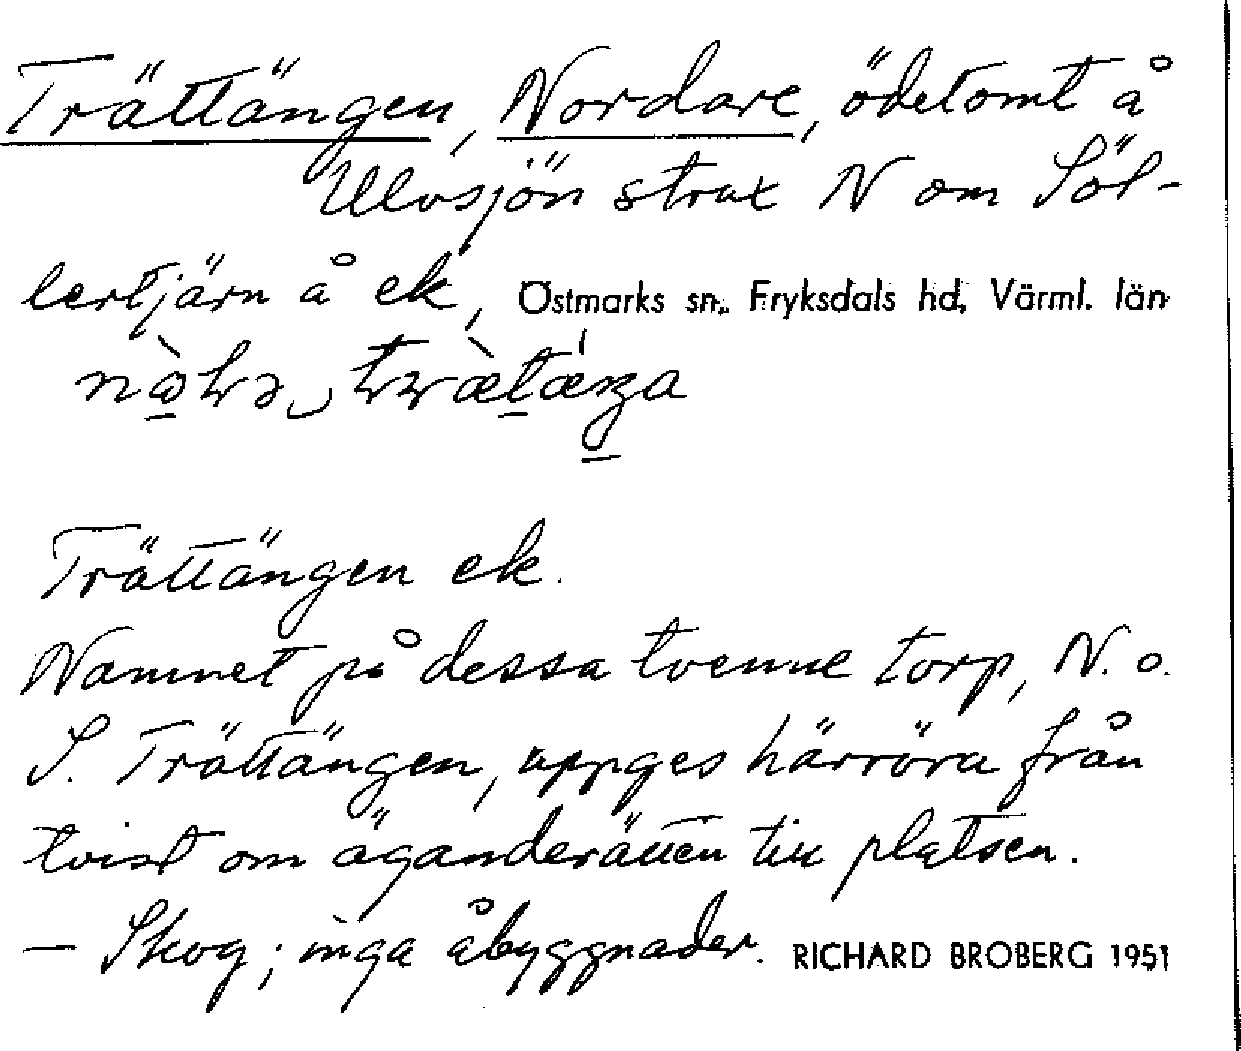 Trättängen, Nordare, ödetomt å
Ulvsjön strax N om Söl-
lertjärn å ek, Östmarks sn., Fryksdals hd, Värml. län
Trättängen ek.
Namnet på dessa tvenne torp, N. o.
S. Trättängen, uppges härröra från
tvist om äganderätten till platsen.
— Skog; inga åbyggnader. RICHARD BROBERG 1951